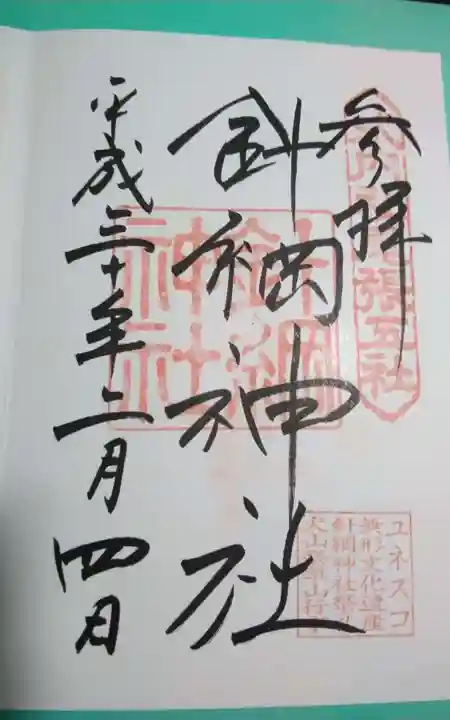 参拝
張五社
針綱神社
針綱神社
平成三十年二月四日
ユネスコ
無形文化遺産
針綱神社祭礼
犬山祭車山行事